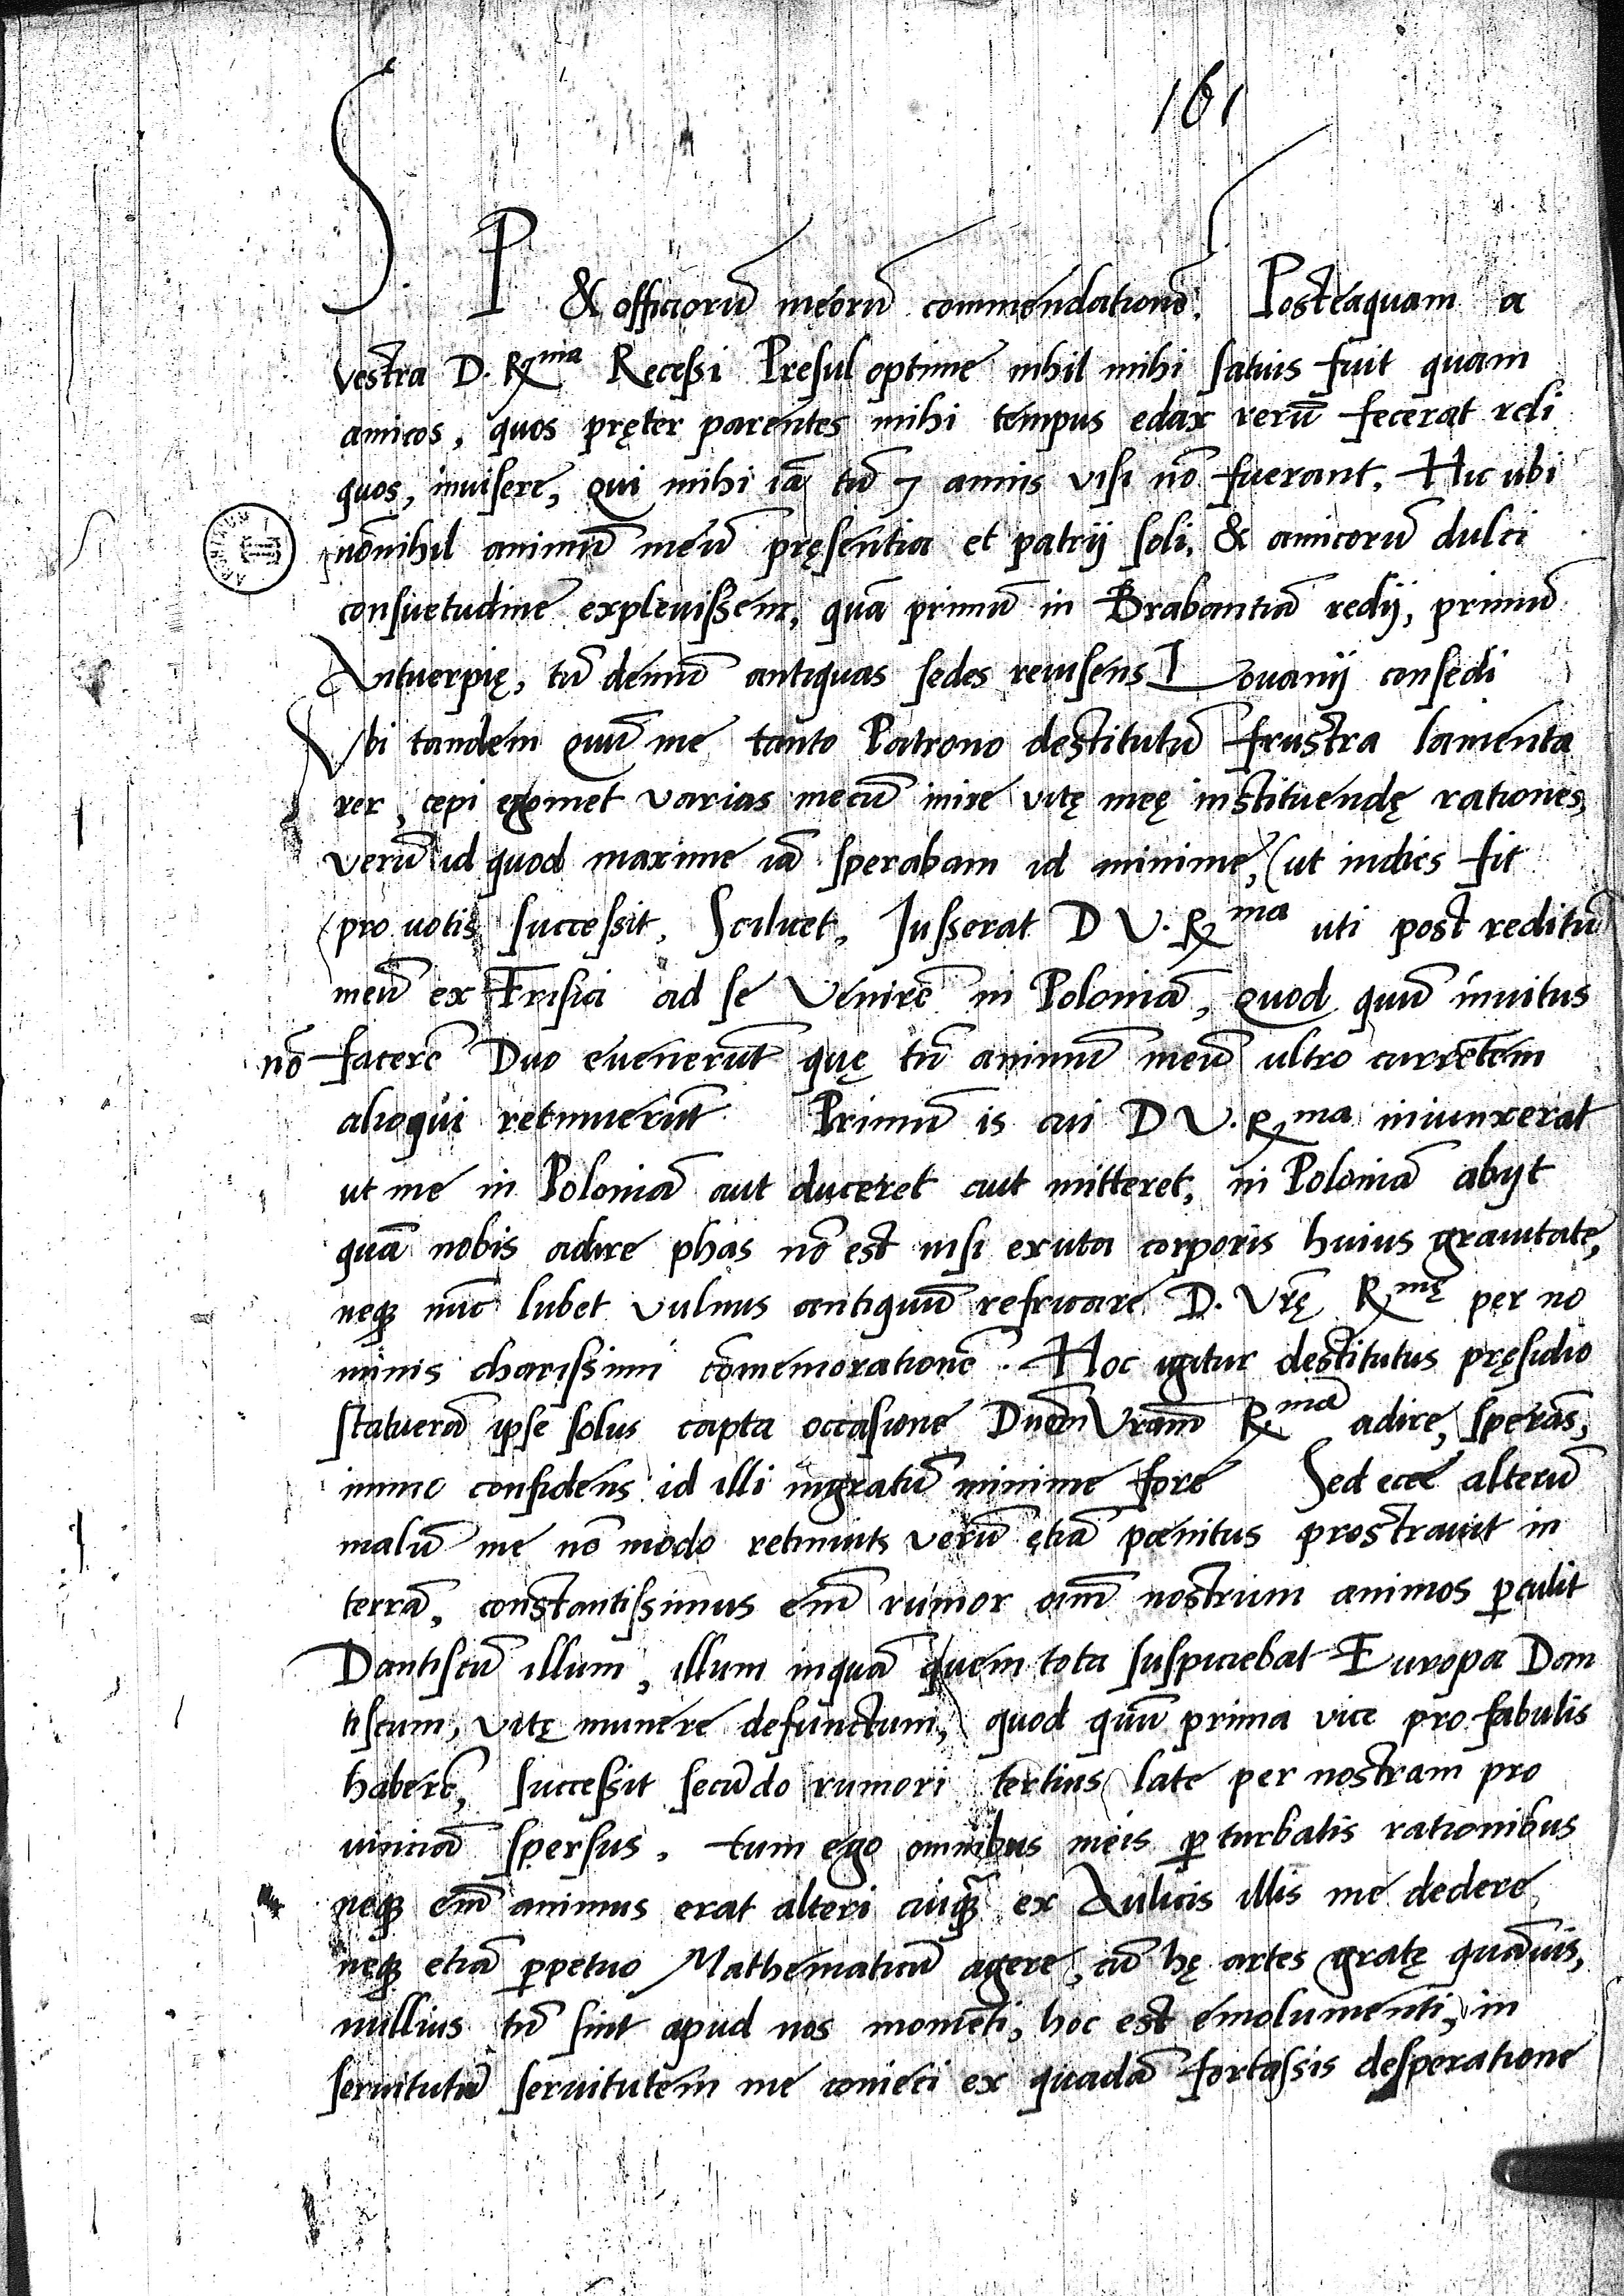 161
S P & officiorũ meorũ commendationẽ. Posteaquam a
vestra D. Rma Recessi Presul optime nihil mihi satius fuit quam
amicos, quos pręter parentes mihi tempus edax rerũ fecerat reli
quos, inuisere, qui mihi iã tũ 7 annis visi nõ fuerant. Hic ubi
nõnihil animũ meũ pręsentia et patrij soli, & amicorũ dulci
consuetudine explevissem, quã primũ in Brabantiã redij, primũ
Antverpię, tũ demũ antiquas sedes reuisens Lovanij consedi
Vbi tandem quũ me tanto Patrono destitutũ frustra lamenta
rer, cepi egomet varias mecũ inire vitę meę instituendę rationes,
verũ id quod maxime iã sperabam id minime, (ut indies fit
pro votis successit. Scilicet, Jusserat D V. Rma uti post reditũ
meũ ex Frisia ad se venirẽ in Poloniã, quod quũ invitus
nõ facerẽ Duo evenerũt quę tũ animũ meũ ultro currẽtem
alioqui retinuerũt. Primũ is cui D V. Rma iniunxerat
ut me in Poloniã aut duceret aut mitteret, in Poloniã abijt
quã nobis adire phas nõ est nisi exuta corporis huius gravitate,
neqꝫ nũc lubet vulnus antiquũ refricare D. Vrę Rmę per no
minis charissimi cõmemorationẽ. Hoc igitur destitutus pręsidio
statuerã ipse solus capta occasione Dnẽm Vram̃ Rmã adire, sperãs,
immo confidens id illi ingratũ minime fore Sed ecce alterũ
malũ me nõ modo retinuit, verũ etiã pœnitus prostravit in
terrã, constantissimus eñi rumor oim̃ nostrum animos ꝑculit
Dantiscũ illum, illum inquã quem tota suspiciebat Europa Dan
tiscum, vitę munere defunctum, quod quũ prima vice pro fabulis
haberẽ, successit secũdo rumori tertius late per nostram pro
vinciã spersus. tum ego omnibus meis ꝑturbatis rationibus
neqꝫ eñi animus erat alteri cuiqꝫ̃ ex Aulicis illis me dedere
neqꝫ etiã ꝑpetuo Mathematicũ agere, cũ hę artes gratę quãvis,
nullius tũ sint apud nos momẽti, hoc est emolumenti, in
servitutũ servitutem me conieci ex quadã fortassis desperatione